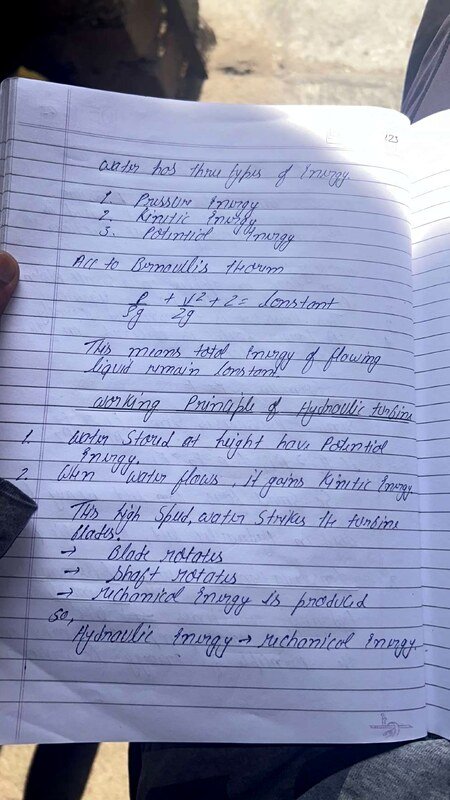 123
water has three types of Energy
1. Pressure Energy
2. Kinetic Energy
3. Potential Energy
Acc to Bernaulli's theorm
P/ρg + V²/2g + Z = Constant
This means total Energy of flowing
liquid remain Constant
Working Principle of Hydraulic turbine
1. Water Stored at height have Potential
Energy.
2. When water flows, it gains Kinetic Energy.
This high Speed, water Strikes the turbine
blades.
→ Blade rotates
→ Shaft rotates
→ Mechanical Energy is produced
So,
Hydraulic Energy → Mechanical Energy.